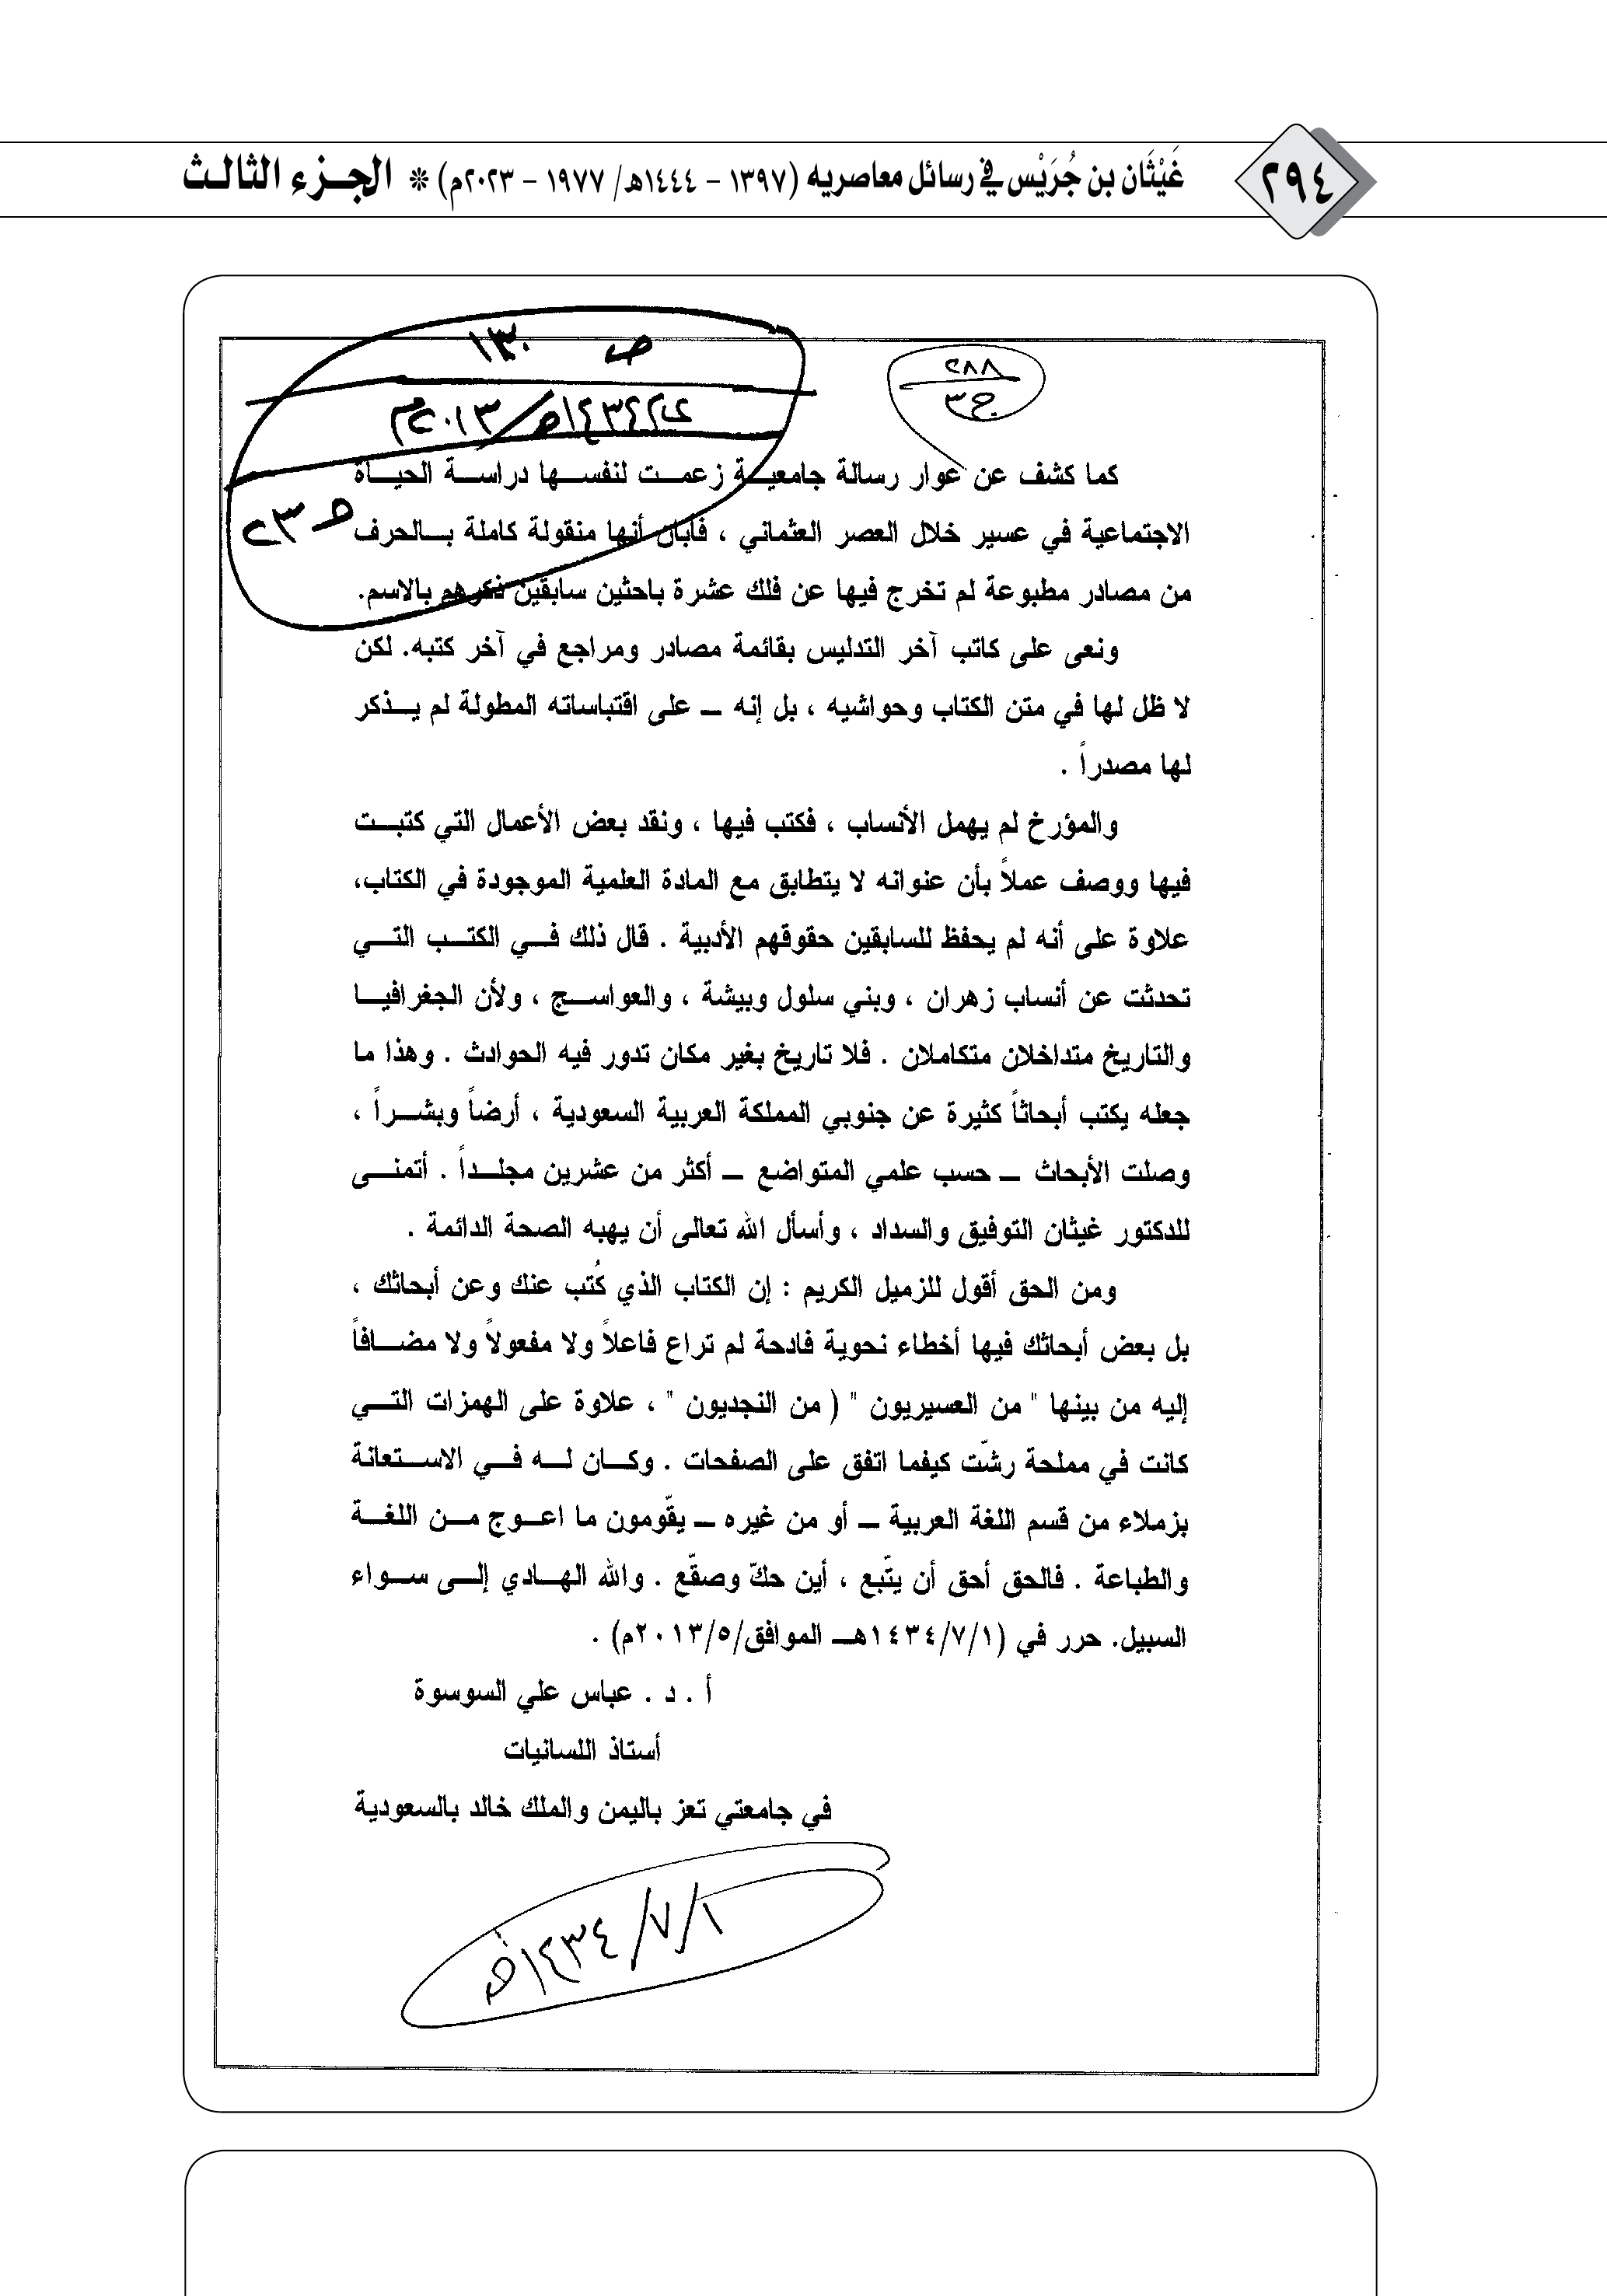 ٢٩٤
غَيْثَان بن جُرَيْس في رسائل معاصريه (١٣٩٧ – ١٤٤٤هـ/ ١٩٧٧ – ٢٠٢٣م) * الجـزء الثالـث
ص ١٣٠
٢٨٨
ج٣
١٤٣٤هـ/٢٠١٣م
كما كشف عن عوار رسالة جامعيــة زعمــت لنفســها دراســة الحيــاة
الاجتماعية في عسير خلال العصر العثماني ، فأبان أنها منقولة كاملة بــالحرف
من مصادر مطبوعة لم تخرج فيها عن فلك عشرة باحثين سابقين ذكرهم بالاسم.
ونعى على كاتب آخر التدليس بقائمة مصادر ومراجع في آخر كتبه. لكن
لا ظل لها في متن الكتاب وحواشيه ، بل إنه ــ على اقتباساته المطولة لم يــذكر
لها مصدراً .
والمؤرخ لم يهمل الأنساب ، فكتب فيها ، ونقد بعض الأعمال التي كتبــت
فيها ووصف عملاً بأن عنوانه لا يتطابق مع المادة العلمية الموجودة في الكتاب،
علاوة على أنه لم يحفظ للسابقين حقوقهم الأدبية . قال ذلك فــي الكتــب التــي
تحدثت عن أنساب زهران ، وبني سلول وبيشة ، والعواســج ، ولأن الجغرافيــا
والتاريخ متداخلان متكاملان . فلا تاريخ بغير مكان تدور فيه الحوادث . وهذا ما
جعله يكتب أبحاثاً كثيرة عن جنوبي المملكة العربية السعودية ، أرضاً وبشــراً ،
وصلت الأبحاث ــ حسب علمي المتواضع ــ أكثر من عشرين مجلــداً . أتمنــى
للدكتور غيثان التوفيق والسداد ، وأسأل الله تعالى أن يهبه الصحة الدائمة .
ومن الحق أقول للزميل الكريم : إن الكتاب الذي كُتب عنك وعن أبحاثك ،
بل بعض أبحاثك فيها أخطاء نحوية فادحة لم تراع فاعلاً ولا مفعولاً ولا مضــافاً
إليه من بينها " من العسيريون " ( من النجديون " ، علاوة على الهمزات التــي
كانت في مملحة رشّت كيفما اتفق على الصفحات . وكــان لــه فــي الاســتعانة
بزملاء من قسم اللغة العربية ــ أو من غيره ــ يقّومون ما اعــوج مــن اللغــة
والطباعة . فالحق أحق أن يتّبع ، أين حكّ وصقّع . والله الهــادي إلــى ســواء
السبيل. حرر في (١٤٣٤/٧/١هــ الموافق/٢٠١٣/٥م) .
أ . د . عباس علي السوسوة
أستاذ اللسانيات
في جامعتي تعز باليمن والملك خالد بالسعودية
١/٧/١٤٣٤هـ